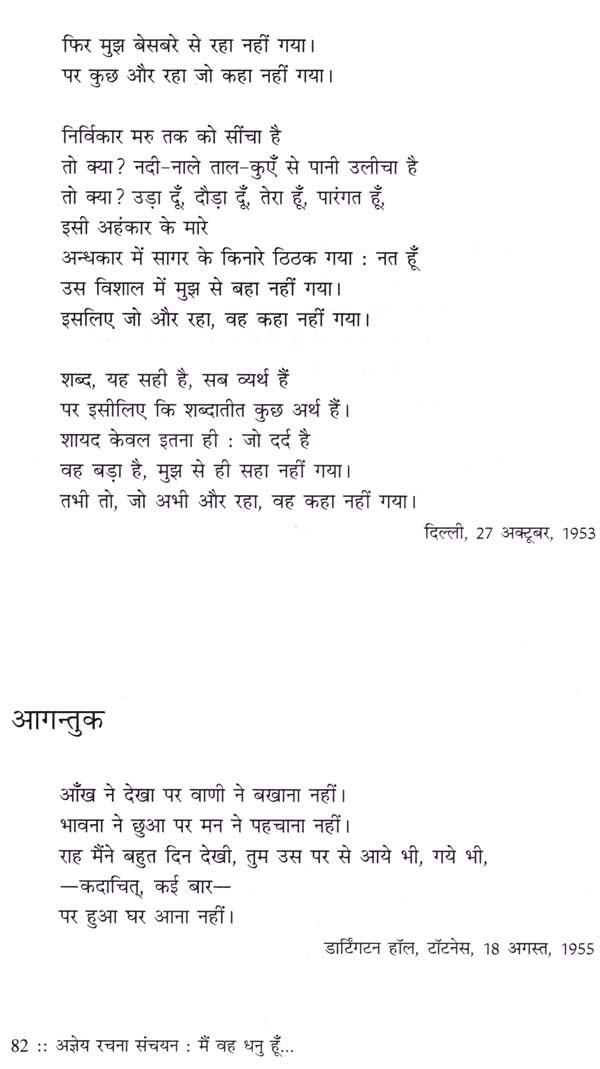 फिर मुझ बेसबरे से रहा नहीं गया।
पर कुछ और रहा जो कहा नहीं गया।
निर्विकार मरु तक को सींचा है
तो क्या? नदी-नाले ताल-कुएँ से पानी उलीचा है
तो क्या? उड़ा दूँ, दौड़ा दूँ, तेरा हूँ, पारंगत हूँ,
इसी अहंकार के मारे
अन्धकार में सागर के किनारे ठिठक गया : नत हूँ
उस विशाल में मुझ से बहा नहीं गया।
इसलिए जो और रहा, वह कहा नहीं गया।
शब्द, यह सही है, सब व्यर्थ हैं
पर इसीलिए कि शब्दातीत कुछ अर्थ हैं।
शायद केवल इतना ही : जो दर्द है
वह बड़ा है, मुझ से ही सहा नहीं गया।
तभी तो, जो अभी और रहा, वह कहा नहीं गया।
दिल्ली, 27 अक्टूबर, 1953
आगन्तुक
आँख ने देखा पर वाणी ने बखाना नहीं।
भावना ने छुआ पर मन ने पहचाना नहीं।
राह मैंने बहुत दिन देखी, तुम उस पर से आये भी, गये भी,
—कदाचित्, कई बार—
पर हुआ घर आना नहीं।
डार्टिंगटन हॉल, टॉटनेस, 18 अगस्त, 1955
82 :: अज्ञेय रचना संचयन : मैं वह धनु हूँ...